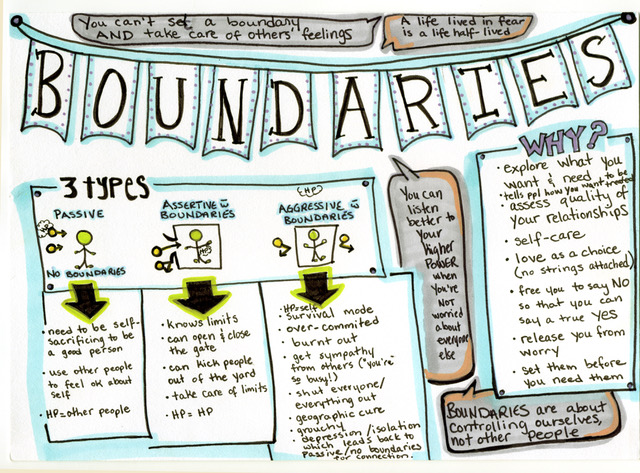 You can't set a boundary
AND take care of others' feelings
A life lived in fear
is a life half-lived
BOUNDARIES
3 types
PASSIVE
NO BOUNDARIES
ASSERTIVE
BOUNDARIES
HP
(HP)
AGGRESSIVE
BOUNDARIES
• need to be self-
sacrificing to be
a good person
• use other people
to feel ok about
self
• HP=other people
• Knows limits
• can open & close
the gate
• can kick people
out of the yard
• take care of limits
• HP = HP
• HP=self
• survival mode
• over-commited
• burnt out
• get sympathy
from others ("you're
so busy!")
• shut everyone/
everything out
• geographic cure
• grouchy
• depression/isolation
which leads back to
Passive/no boundaries
for connection.
You can
listen
better to
your
higher
POWER
when
you're
NOT
worried
about
everyone
else
WHY?
• explore what you
want & need to be
• tells ppl how you want treated
• assess quality of
your relationships
• self-care
• love as a choice
(no strings attached)
• free you to say NO
so that you can
say a true YES
• release you from
worry
• set them before
you need them
BOUNDARIES are about
controlling ourselves,
not other people